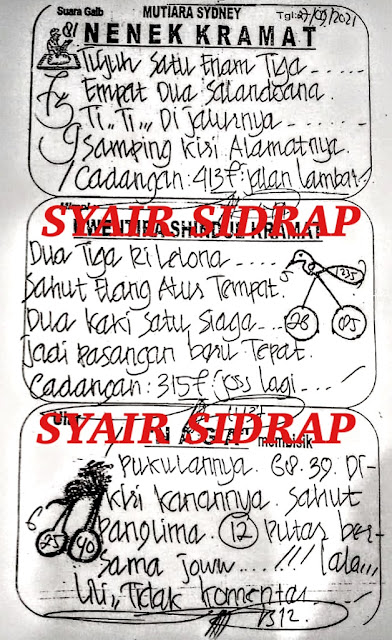 Suara Gaib MUTIARA SYDNEY Tgl: 27/09/2021
NENEK KRAMAT
Tujuh Satu Enam Tiga ......
Empat Dua Salandoana.
Ti,, Ti,,, Di jalurnya ......
Samping Kiri Alamatnya.
Cadangan: 413f: jalan lambat
SYAIR SIDRAP
KRAMAT
Dua Tiga Ri Lelona .....
Sahut Elang Atus Tempat.
Dua Kaki Satu Siaga ...
Jadi Pasangan baru Tepat.
Cadangan: 315f: joss lagi ....
28
05
SYAIR SIDRAP
NAGA membisik
Pukulannya. G.P. 39. Di-
kiri kanannya. Sahut
Panglima. 12 putar ber-
sama joww .... !!! lala,,,
Lili,, Tidak komentar
25
40